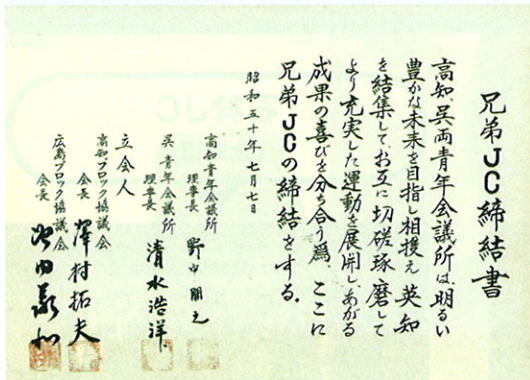 兄弟JC締結書
高知、呉両青年会議所は、明るい
豊かな未来を目指し相携え英知
を結集してお互に切磋琢磨して
より充実した運動を展開しあがる
成果の喜びを分ち合う為、ここに
兄弟JCの締結をする。
昭和五十年七月七日
高知青年会議所
理事長 野中朋之
呉青年会議所
理事長 清水浩洋
立会人
高知ブロック協議会
会長 澤村拓夫
広島ブロック協議会
会長